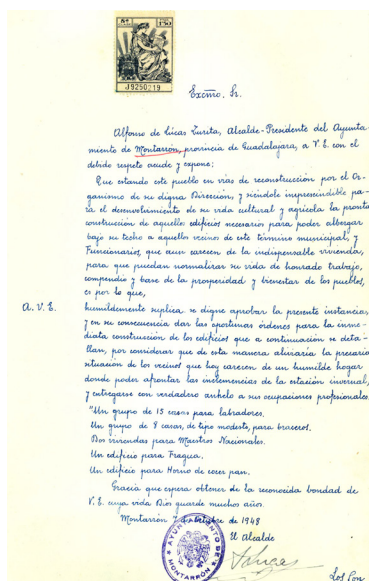 5ª CLASE
1'50
J9250219
Excmo. Sr.
Alfonso de Lucas Zurita, Alcalde-Presidente del Ayunta-
miento de Montarrón, provincia de Guadalajara, a V.E. con el
debido respeto acude y expone:
Que estando este pueblo en vías de reconstrucción por el Or-
ganismo de su digna Dirección, y siéndole imprescindible pa-
ra el desenvolvimiento de su vida cultural y agrícola la pronta
construcción de aquellos edificios necesarios para poder albergar
bajo su techo a aquellos vecinos de este término municipal, y
Funcionarios, que aun carecen de la indispensable vivienda,
para que puedan normalizar su vida de honrado trabajo,
compendio y base de la prosperidad y bienestar de los pueblos,
es por lo que,
A. V. E.
humildemente suplica, se digne aprobar la presente instancia,
y en su consecuencia dar las oportunas órdenes para la inme-
diata construcción de los edificios que a continuación se deta-
llan, por considerar que de esta manera aliviaría la precaria
situación de los vecinos que hoy carecen de un humilde hogar
donde poder afrontar las inclemencias de la estación invernal,
y entregarse con verdadero anhelo a sus ocupaciones profesionales.
"Un grupo de 15 casas para labradores.
Un grupo de 8 casas, de tipo modesto, para braceros.
Dos viviendas para Maestros Nacionales.
Un edificio para Fragua.
Un edificio para Horno de cocer pan.
Gracia que espera obtener de la reconocida bondad de
V.E. cuya vida Dios guarde muchos años.
Montarrón 7 de Octubre de 1948
El Alcalde
AYUNTAMIENTO DE MONTARRÓN